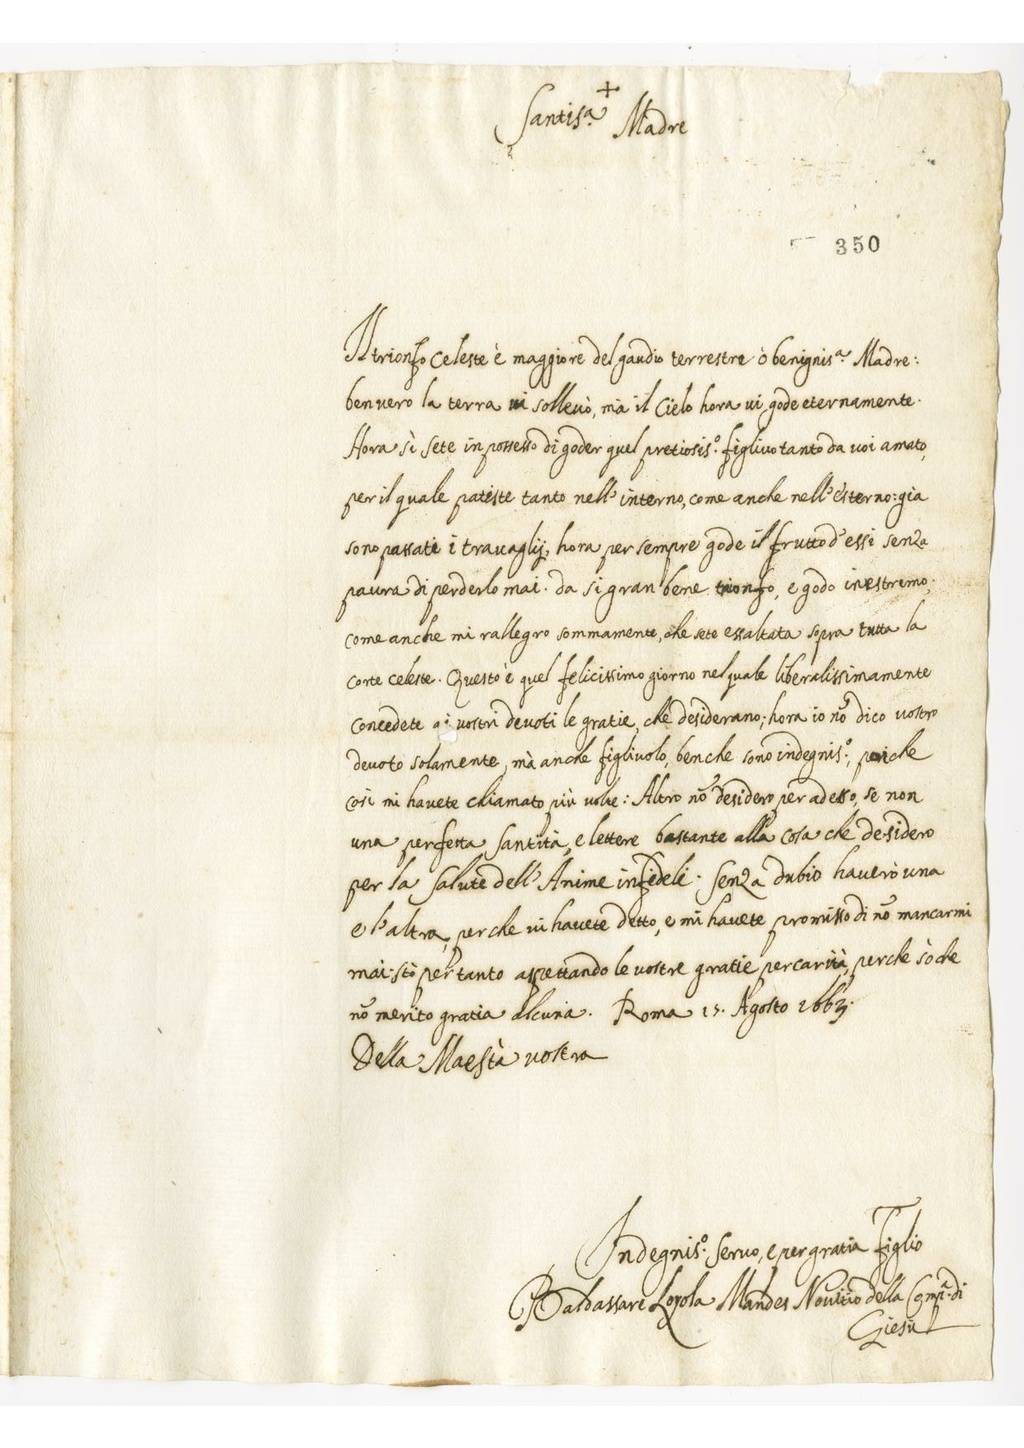 +
Santis.ª Madre
350
Il trionfo Celeste è maggiore del gaudio terrestre ò benignis.ª Madre:
ben vero la terra vi sollevò, mà il Cielo hora vi gode eternamente.
Hora sì sete in possesso di goder quel pretiosis.º figlivo tanto da voi amato,
per il quale patiste tanto nell'interno, come anche nell'esterno: già
sono passati i travaglij, hora per sempre gode il frutto d'essi senza
paura di perderlo mai. da si gran bene trionfo, e godo in estremo,
come anche mi rallegro sommamente, che sete essaltata sopra tutta la
corte celeste. Questo è quel felicissimo giorno nel quale liberalissimamente
concedete a i vostri devoti le gratie, che desiderano; hora io nõ dico vostro
devoto solamente, mà anche figlivolo, benche sono indegnis.º, poiche
così mi havete chiamato più volte: Altro nõ desidero per adesso, se non
una perfetta Santità, e lettere bastante alla cosa che desidero
per la Salute dell'Anime infideli. Senza dubio haverò una
e l'altra, perche mi havete detto, e mi havete promisso di nõ mancarmi
mai: stò per tanto aspettando le vostre gratie per carità, perche sò che
nõ merito gratia alcuna. Roma 15. Agosto 1663.
Della Maestà vostra
Indegnis.º Servo, e per gratia Figlio
Baldassare Loyola Mandes Novitio della Comp.ª di
Giesù